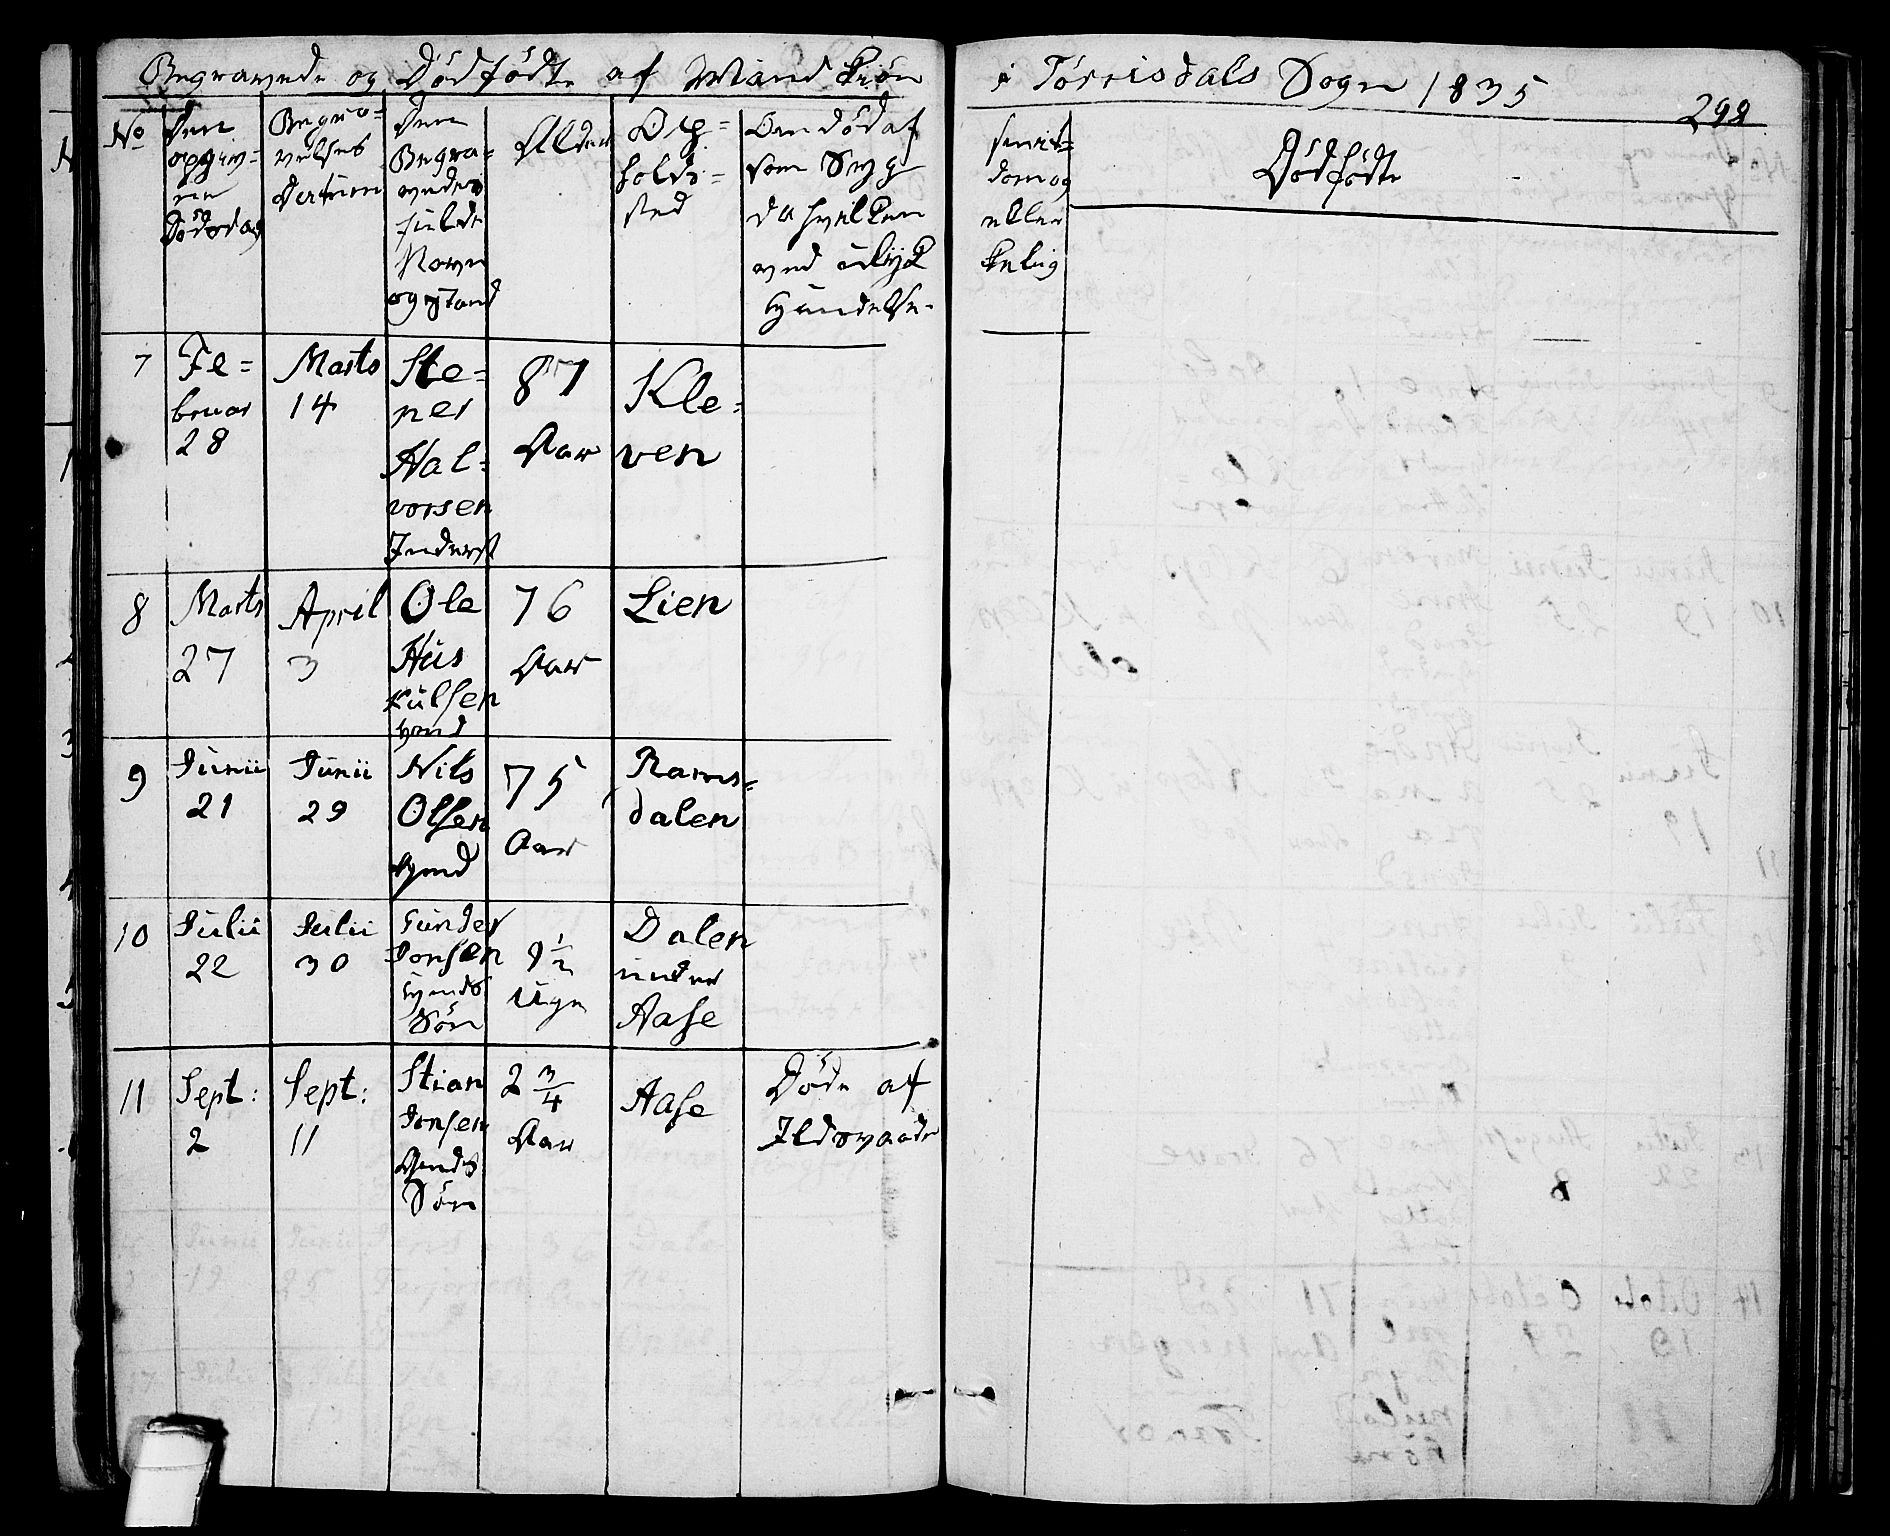 Begravede og Dødfødte af Mandkiøn
i Tørrisdals Sogn 1835
298
No
Den
opgiv=
ne
Dødsdag
Begra=
velses
Datum
Den
Begra=
vedes
fulde
Navn
og Stand
Alder
Op=
holds=
sted
Om død af
som Syg
da hvilken
ved ulyk
Hændelse
Dødfødte
eller
7
Fe=
bruar
28
Marts
14
Ste=
ner
Hal=
vorsen
Inderst
87
Aar
Kle=
ven
8
Marts
27
April
3
Ole
Hüs
külsen
76
Aar
Lien
9
Junii
21
Junii
29
Nils
Olsen
75
Aar
Rams=
dalen
10
Julii
22
Julii
30
Gunder
Jonsen
Gmds
Søn
9 1/2
Uge
Dalen
under
Aase
11
Sept:
2
Sept:
11
Stian
Jonsen
Gmds
Søn
2 3/4
Aar
Aase
Døde af
Ildsvaade